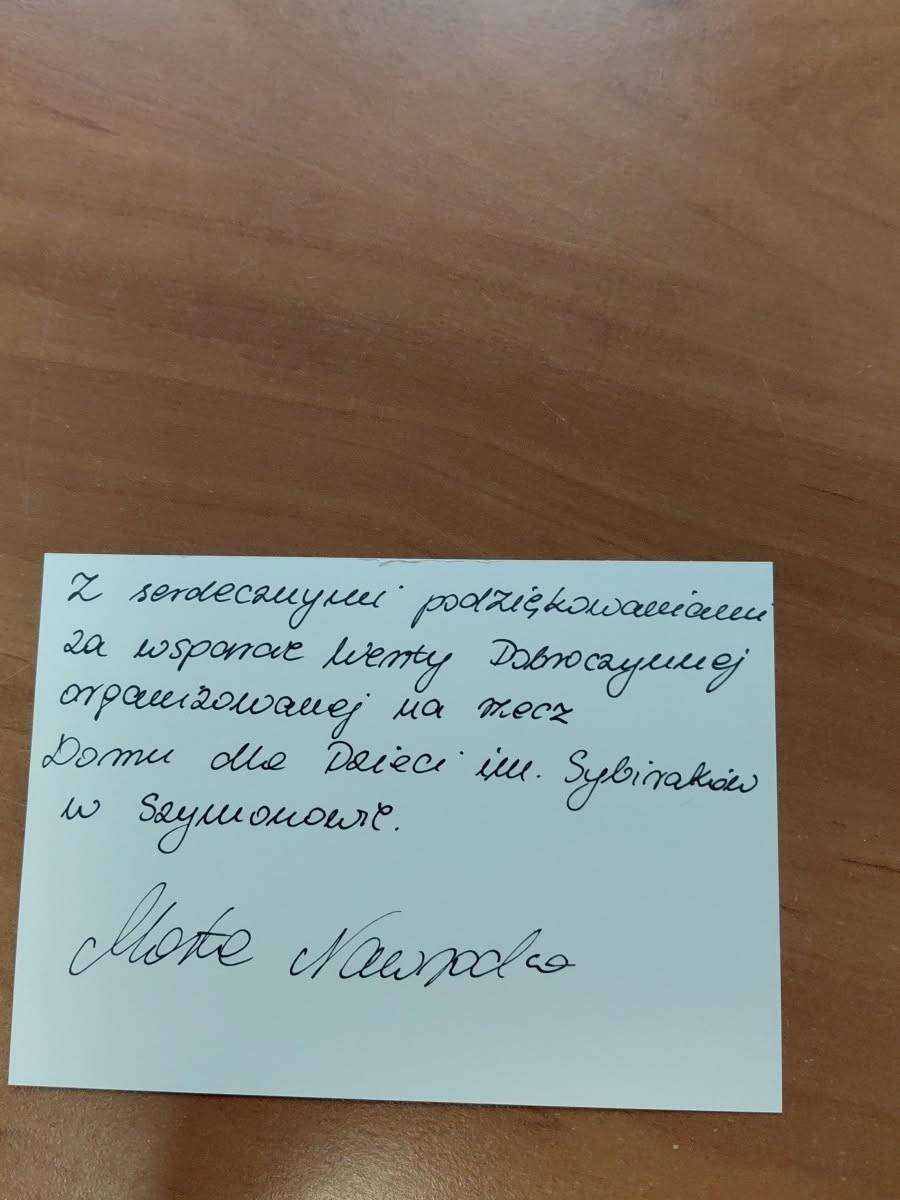 Z serdecznymi podziękowaniami
za wsparcie Wenty Dobroczynnej
organizowanej na rzecz
Domu dla Dzieci im. Sybiraków
w Szymonowie.
Marta Nawrocka